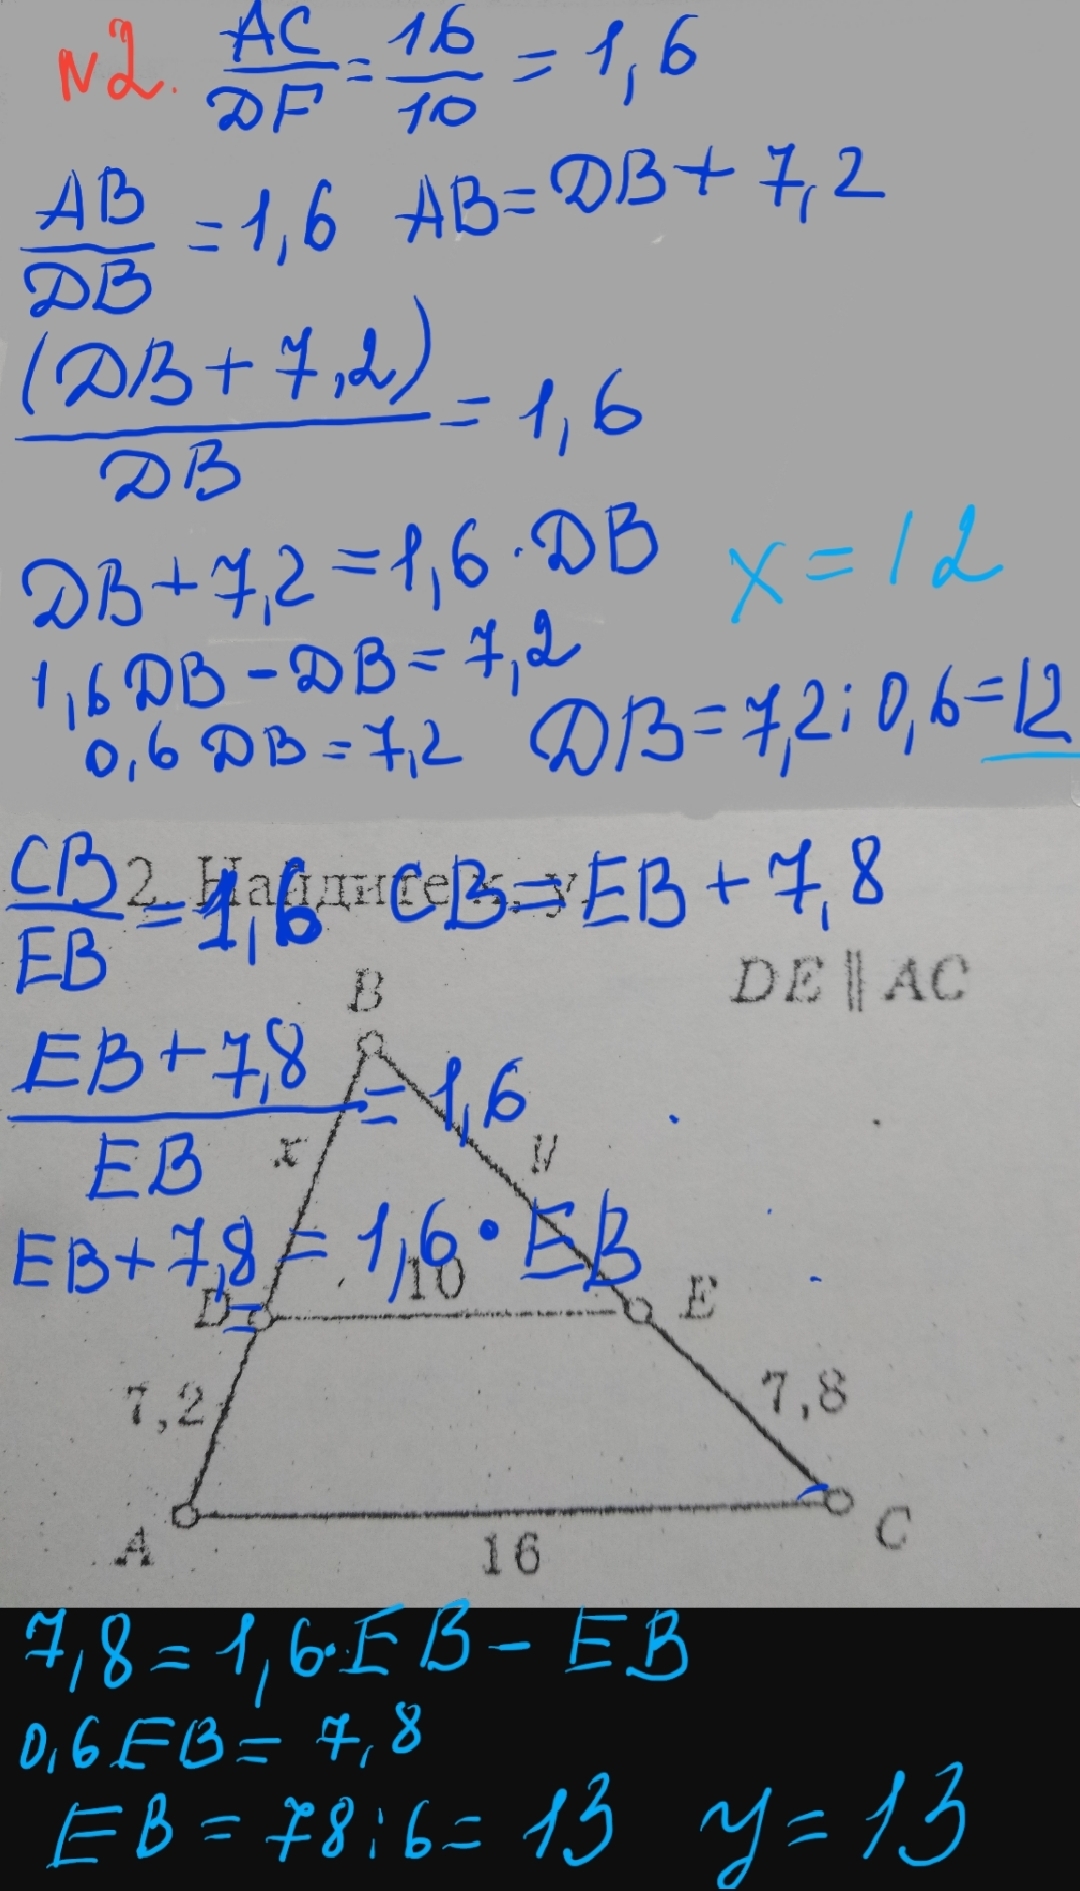 N2. AC/DF = 16/10 = 1,6
AB/DB = 1,6 AB = DB + 7,2
(DB + 7,2)/DB = 1,6
DB + 7,2 = 1,6 · DB x = 12
1,6 DB - DB = 7,2
0,6 DB = 7,2 DB = 7,2 : 0,6 = 12
CB/EB = 1,6 CB = EB + 7,8
2. Найдите x, y
DE || AC
B
(EB + 7,8)/EB = 1,6
x
y
EB + 7,8 = 1,6 · EB
D 10 E
7,2 7,8
A 16 C
7,8 = 1,6 · EB - EB
0,6 EB = 7,8
EB = 78 : 6 = 13 y = 13